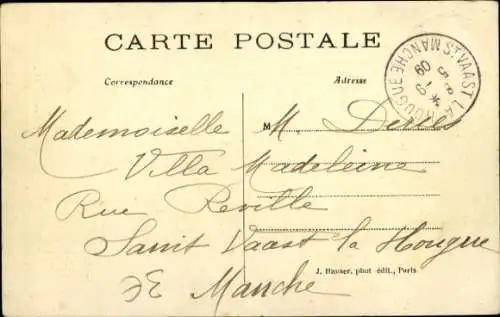 CARTE POSTALE
Correspondance
Adresse
ST VAAST LA HOUGUE MANCHE
Mademoiselle M.
Villa Madeleine
Rue Reville
Saint Vaast la Hougue
Manche
J. Hauser, phot édit., Paris